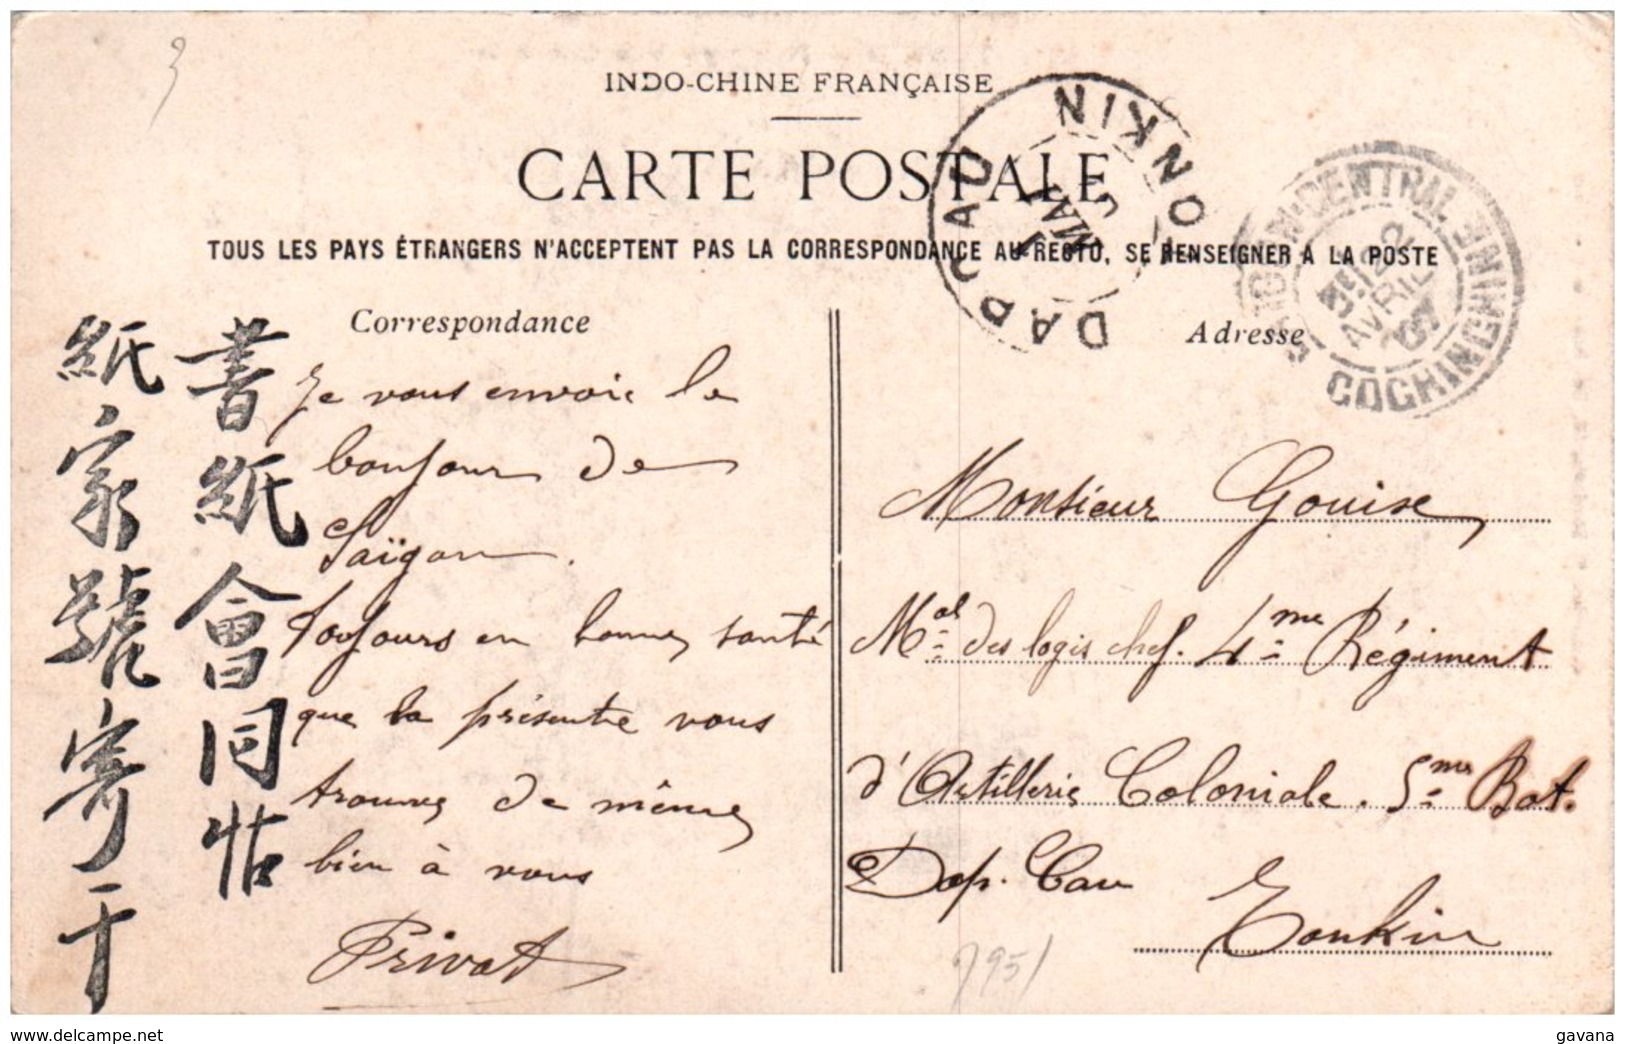 INDO-CHINE FRANÇAISE
CARTE POSTALE
TOUS LES PAYS ÉTRANGERS N'ACCEPTENT PAS LA CORRESPONDANCE AU RECTO, SE RENSEIGNER A LA POSTE
DAP CAU TONKIN
MAI
SAIGON-CENTRAL COCHINCHINE
22
AVRIL
07
Correspondance
Je vous envoie le
bonjour de
Saïgon.
Toujours en bonne santé
que la présente vous
trouve de même
bien à vous
Privat
書紙會同帖
紙家號寄于
Adresse
Monsieur Gouise
Mal des logis chef. 4me Régiment
d'Artillerie Coloniale. 5me Bat.
Dap. Cau
Tonkin
7951
3
www.delcampe.net
gavana